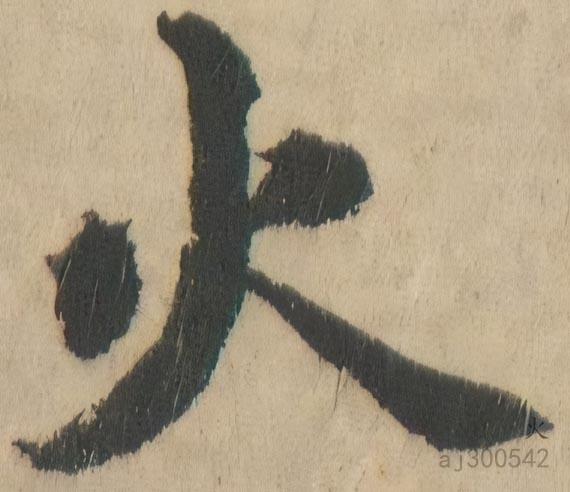 火
火
aj300542